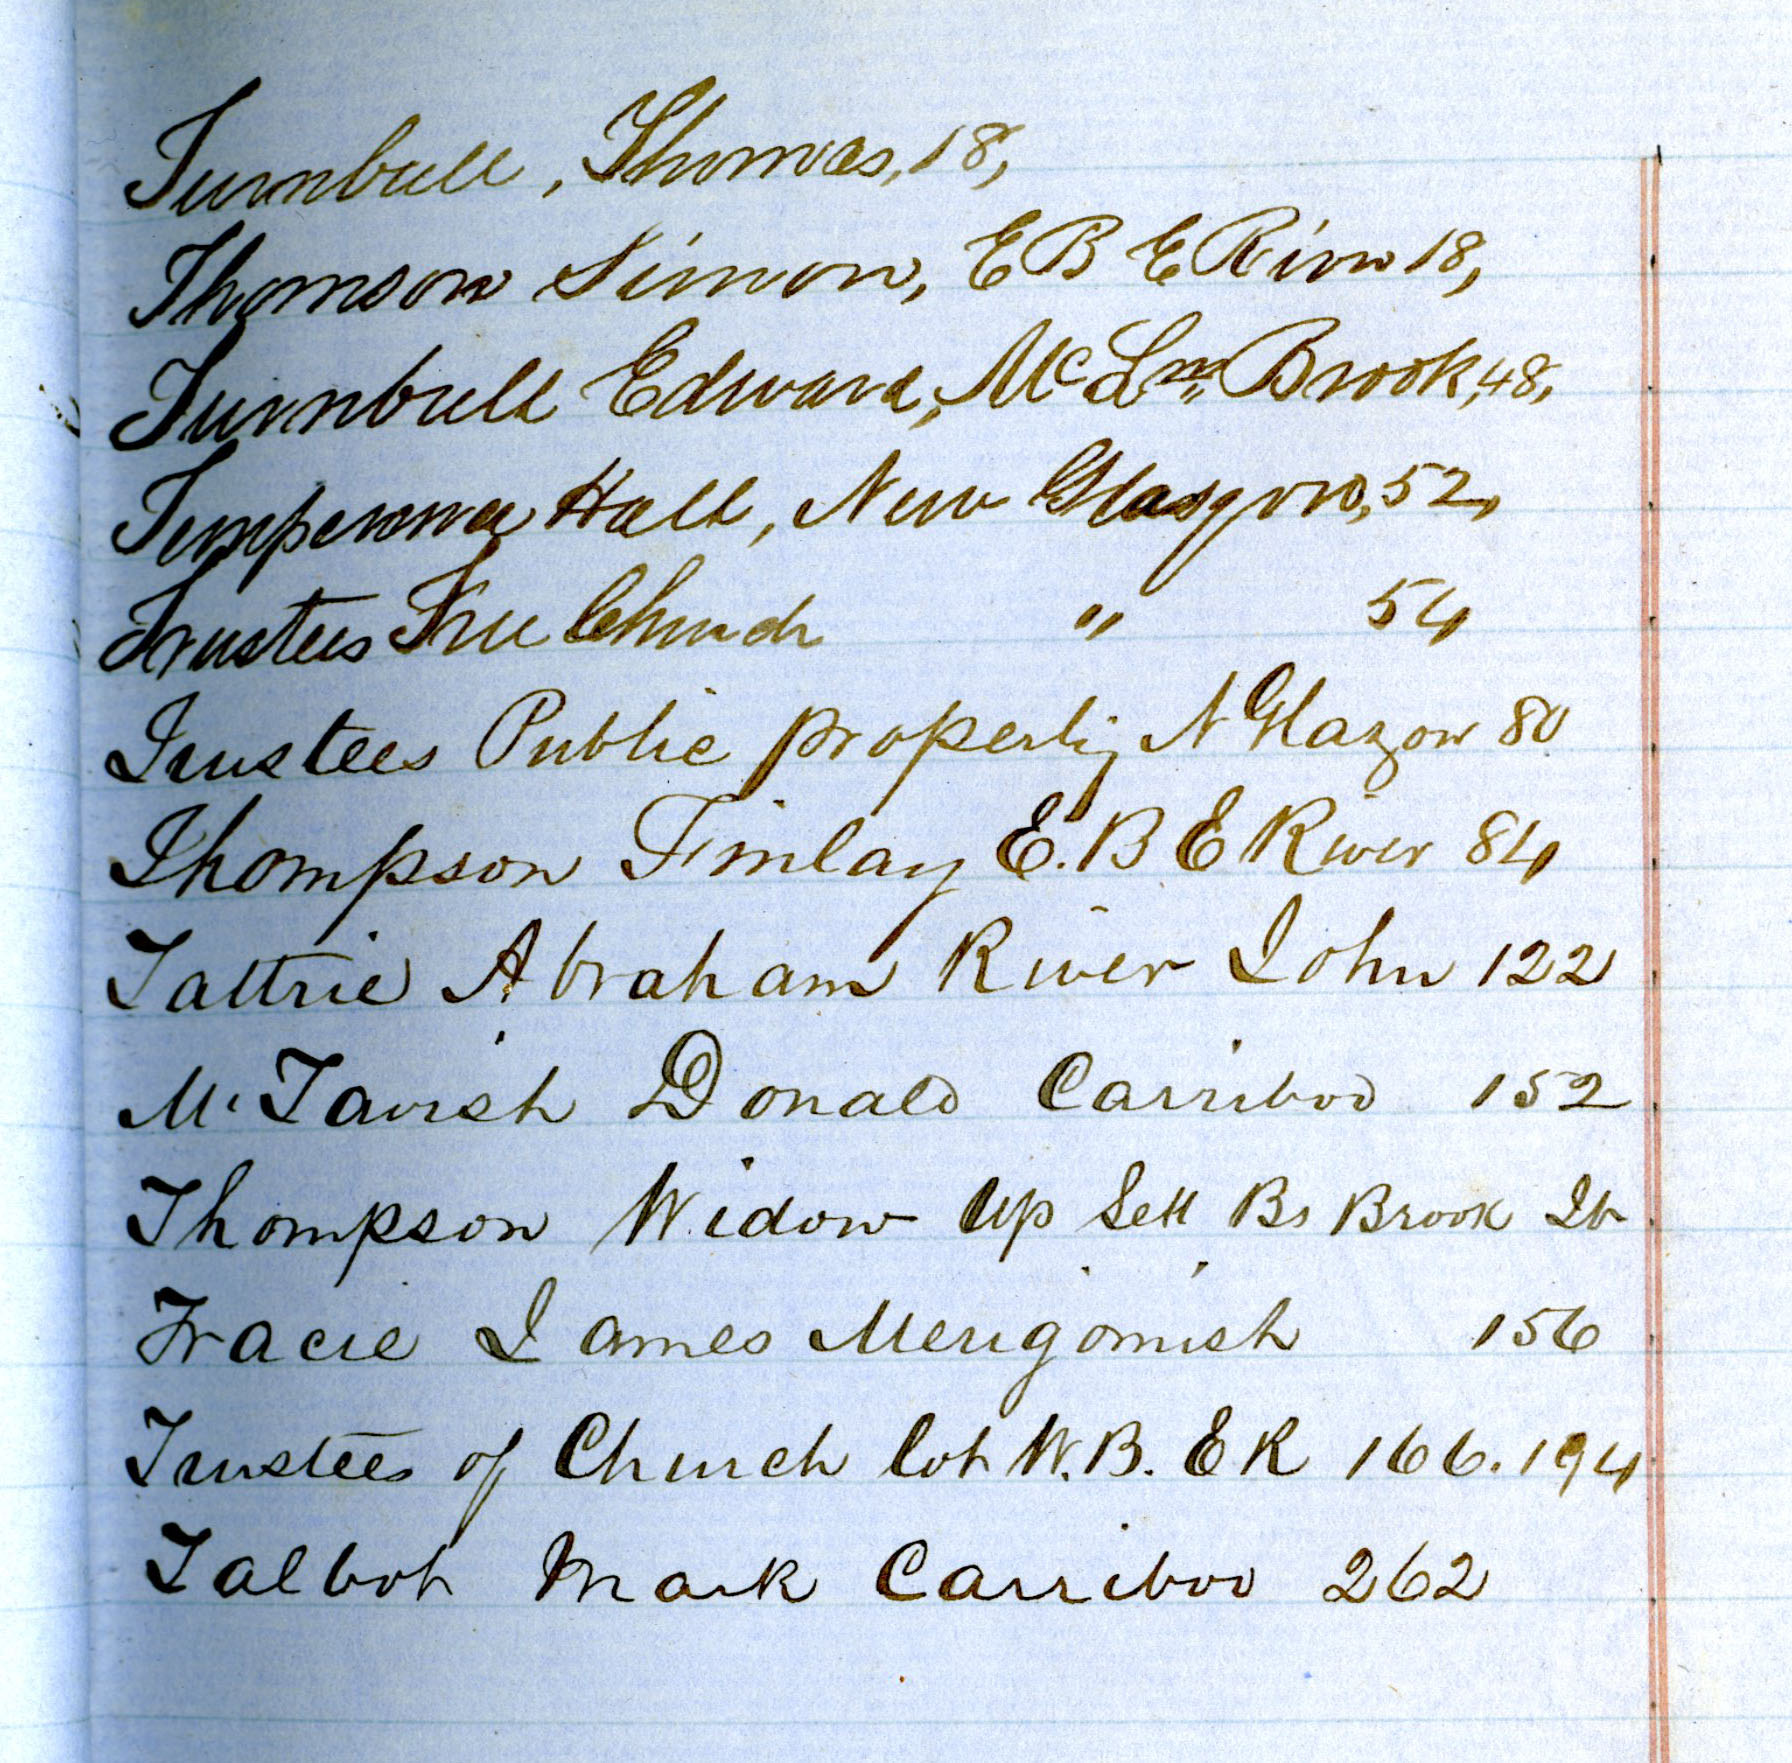 Turnbull, Thomas, 18,
Thomson Simon, E B E River 18,
Turnbull Edward, McLns Brook, 48,
Temperance Hall, New Glasgow, 52,
Trustees Free Church " 54
Trustees Public property N Glazgow 80
Thompson Finlay E. B E River 84
Tattrie Abraham River John 122
Mc Tavish Donald Carriboo 152
Thompson Widow Up Sett Bs Brook Ib
Tracie James Merigomish 156
Trustees of Church lot W. B. E R 166. 194
Talbot Mark Carriboo 262